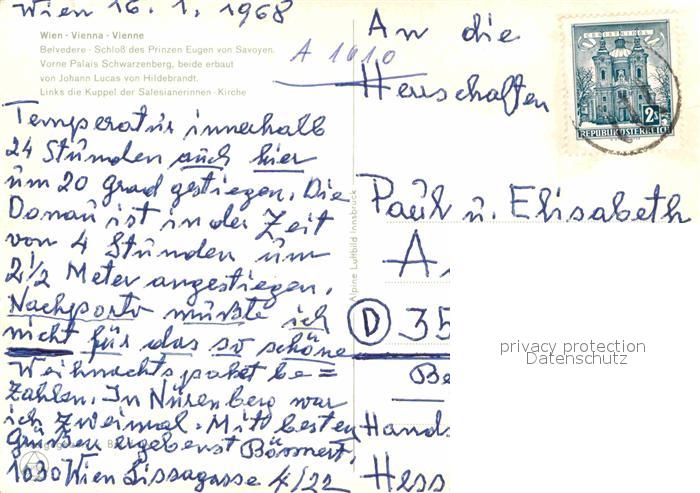 Wien 16. 1. 1968
Wien - Vienna - Vienne
Belvedere - Schloß des Prinzen Eugen von Savoyen.
Vorne Palais Schwarzenberg, beide erbaut
von Johann Lucas von Hildebrandt.
Links die Kuppel der Salesianerinnen-Kirche
A 1010
Temperatur innerhalb
24 Stunden auch hier
um 20 Grad gestiegen. Die
Donau ist in der Zeit
von 4 Stunden um
2 1/2 Meter angestiegen.
Nachporto mußte ich
nicht für das so schöne
Weihnachtspaket be=
zahlen. In Nürenberg war
ich zweimal. Mit besten
Grüßen ergebenst
1030 Wien Lissagasse 4/22
Alpine Luftbild Innsbruck
An die
Herrschaften
Paul u. Elisabeth
A.
D 35
Be
Hands
Hess
CHRISTKINDL
2 S
REPUBLIK ÖSTERREICH
privacy protection
Datenschutz